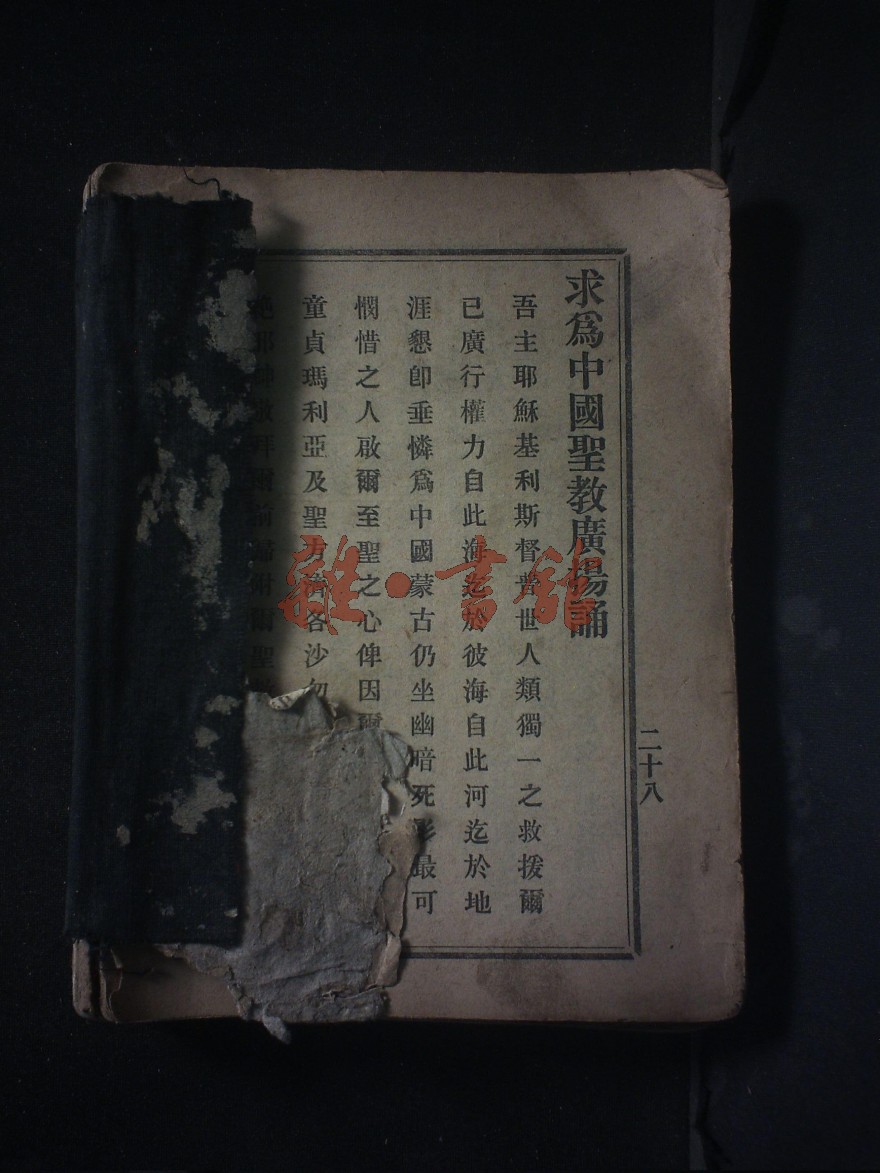 求爲中國聖教廣揚誦
吾主耶穌基利斯督普世人類獨一之救援爾
已廣行權力自此海迄於彼海自此河迄於地
涯懇卽垂憐爲中國蒙古仍坐幽暗死影最可
憫惜之人啟爾至聖之心俾因爾
童貞瑪利亞及聖方濟各沙勿
二十八
雜·書館